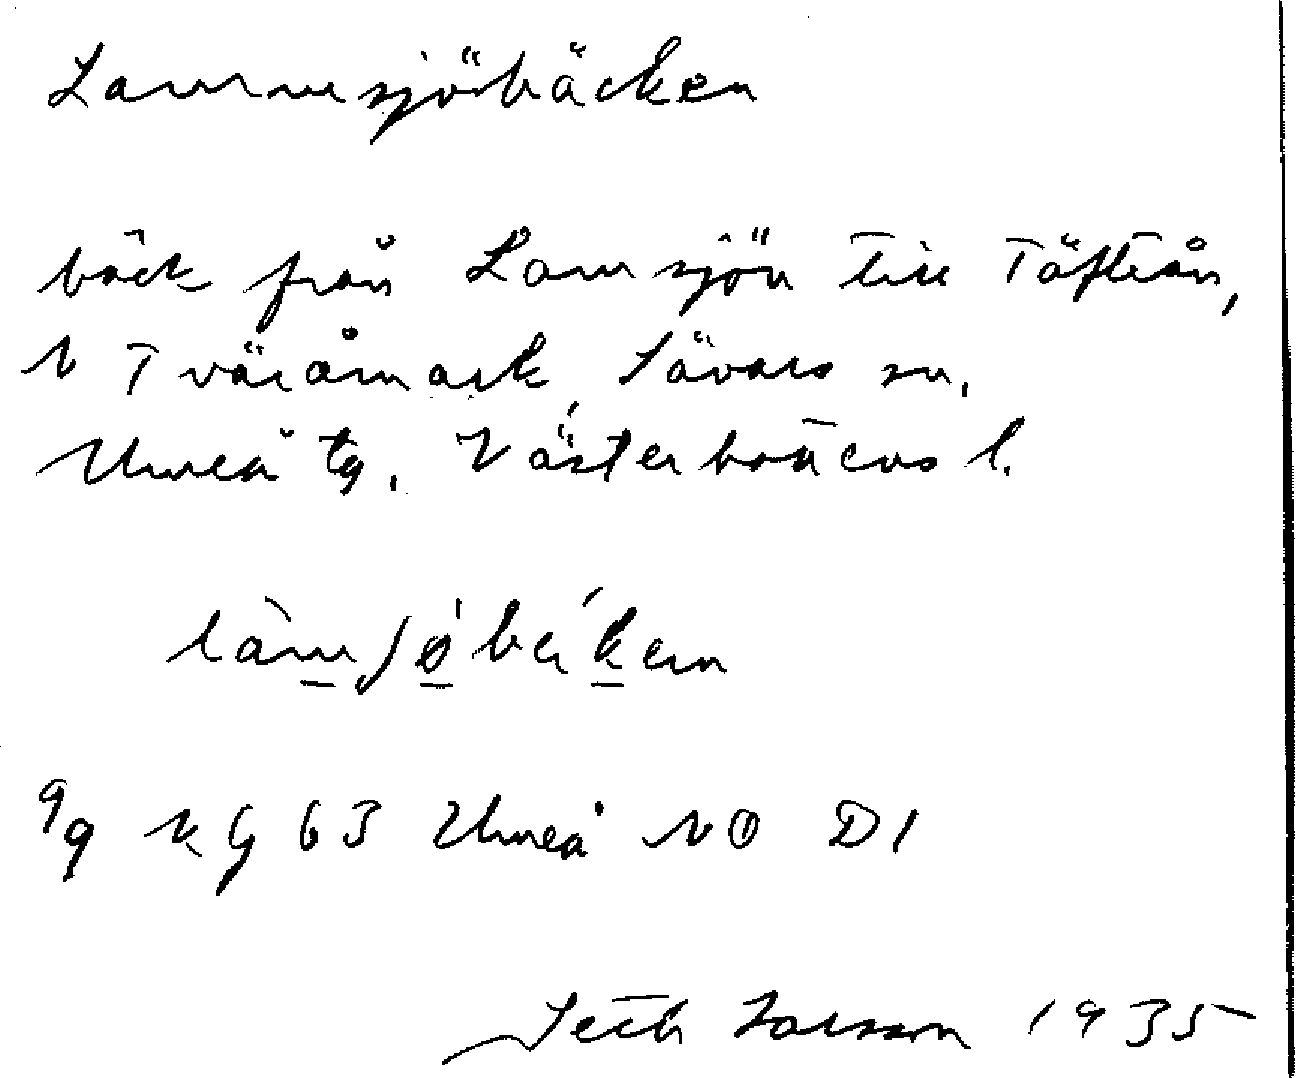 Lammsjöbäcken
bäck från Lamsjön till Täfteån,
N Tväråmark, Sävars sn,
Umeå tg, Västerbottens l.
9/9 KG 63 Umeå NO D1
Seth Larsson 1935